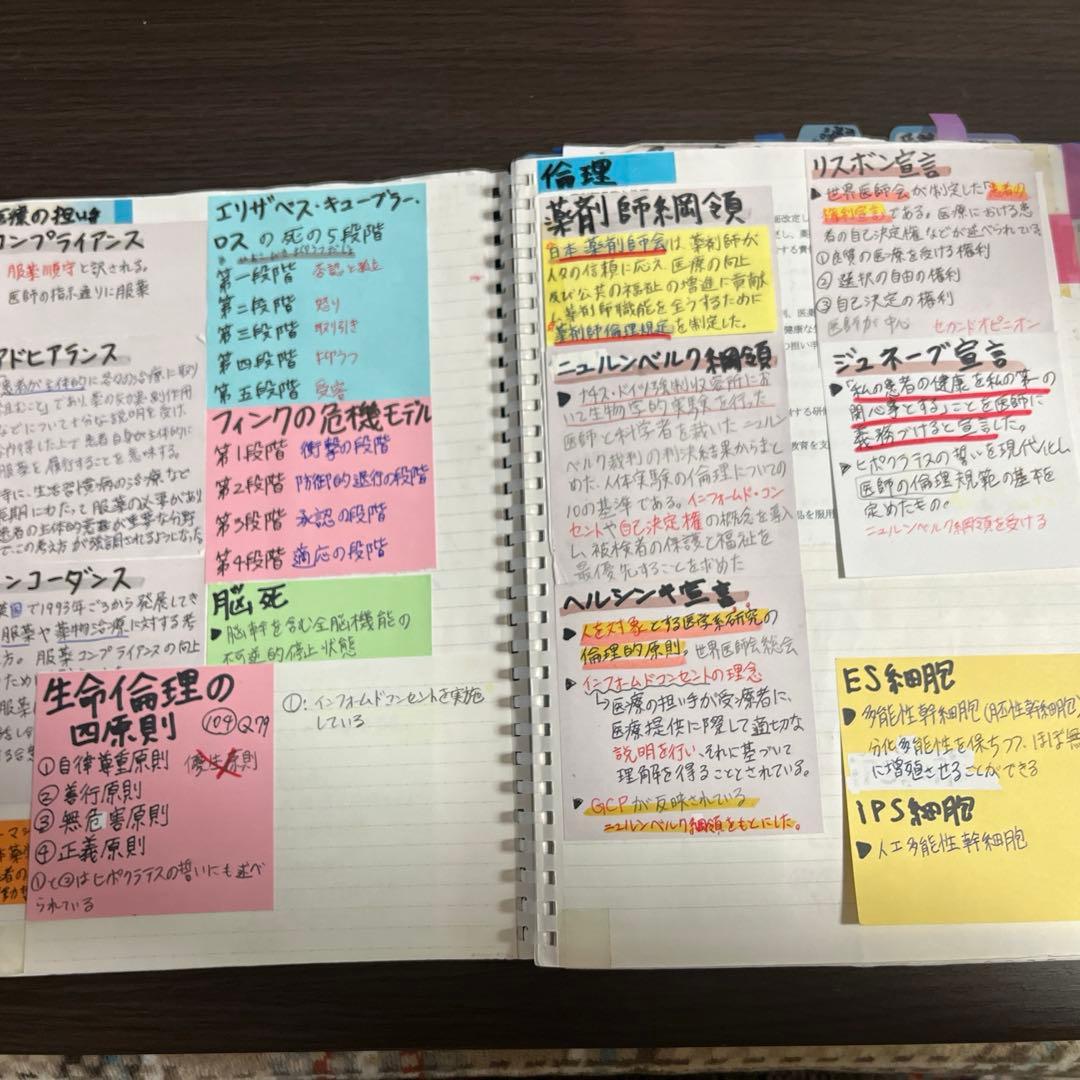 医療の担い手
コンプライアンス
服薬順守と訳される。
医師の指示通りに服薬
アドヒアランス
患者が主体的に
などについて十分な説明を受け、
た上で患者自身が主体的に
服薬を履行することを意味する。
特に、生活習慣病の治療など
長期にわたって服薬の必要があり
患者の主体的
でこの考え方が強調されるようになった
ンコーダンス
英国で1993年ごろから発展してき
服薬や薬物治療に対する考
方。服薬コンプライアンスの向上
エリザベス・キューブラー・
ロスの死の5段階
第一段階 否認と孤立
第二段階 怒り
第三段階 取り引き
第四段階 抑うつ
第五段階 受容
フィンクの危機モデル
第1段階 衝撃の段階
第2段階 防御的退行の段階
第3段階 承認の段階
第4段階 適応の段階
脳死
▶脳幹を含む全脳機能の
不可逆的停止状態
生命倫理の
四原則 104 Q79
①自律尊重原則 優性原則
②善行原則
③無危害原則
④正義原則
①と③はヒポクラテスの誓いにも述べ
られている
①:インフォームドコンセントを実施
している
倫理
薬剤師綱領
日本薬剤師会は、薬剤師が
人々の信頼に応え、医療の向上
及び公共の福祉の増進に貢献
し、薬剤師職能を全うするために
薬剤師倫理規定を制定した。
ニュルンベルク綱領
▶ナチス・ドイツ強制収容所にお
いて生物医学的実験を行った
医師と科学者を裁いたニュルン
ベルク裁判の判決結果からまと
めた、人体実験の倫理についての
10の基準である。インフォームド・コン
セントや自己決定権の概念を導入
し、被検者の保護と福祉を
最優先することを求めた
ヘルシンキ宣言
▶人を対象とする医学系研究の
倫理的原則。世界医師会総会
▶インフォームドコンセントの理念
↳医療の担い手が受療者に、
医療提供に際して適切な
説明を行い、それに基づいて
理解を得ることとされている。
▶GCPが反映されている
ニュルンベルク綱領をもとにした。
リスボン宣言
▶世界医師会が制定した「患者の
権利宣言」である。医療における患
者の自己決定権などが述べられている
①良質の医療を受ける権利
②選択の自由の権利
③自己決定の権利
医師が中心 セカンドオピニオン
ジュネーブ宣言
▶「私の患者の健康を私の第一の
関心事とする」ことを医師に
義務づけると宣言した。
▶ヒポクラテスの誓いを現代化し
医師の倫理規範の基本を
定めたもの。
ニュルンベルク綱領を受ける
ES細胞
▶多能性幹細胞(胚性幹細胞)
分化多能性を保ちつつ、ほぼ無
に増殖させることができる
IPS細胞
▶人工多能性幹細胞